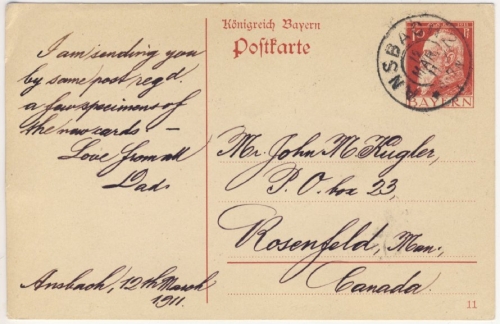 Königreich Bayern
Postkarte
ANSBACH
BAYERN
I am sending you
by same post regd.
a few specimen of
the new cards —
Love from all
Dad.
Ansbach, 12th March
1911.
Mr. John M Kugler,
P. O. box 23,
Rosenfeld, Man.,
Canada.
11